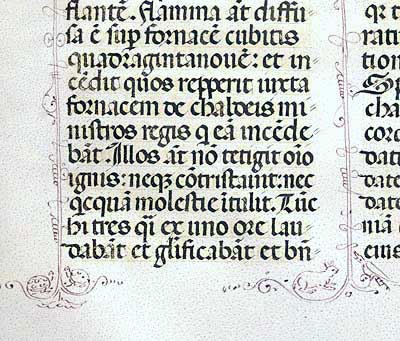 flantē. Flamma aūt diffu
sa ē sup̄ fornacē cubitis
quadragintanovē: et in
cēdit quos repperit iuxta
fornacem de chaldeis mi
nistros regis q̄ eā incēde
bāt. Illos aūt nō tetigit oīo
ignis: neqꝫ cōtristavit: nec
qc̄quā molestie ītulit. Tūc
hi tres q̄si ex uno ore lau
dabāt et glīficabāt et bn̄
qr t
rati
tion
Sp
cha
cord
date
date
date
nia
eius